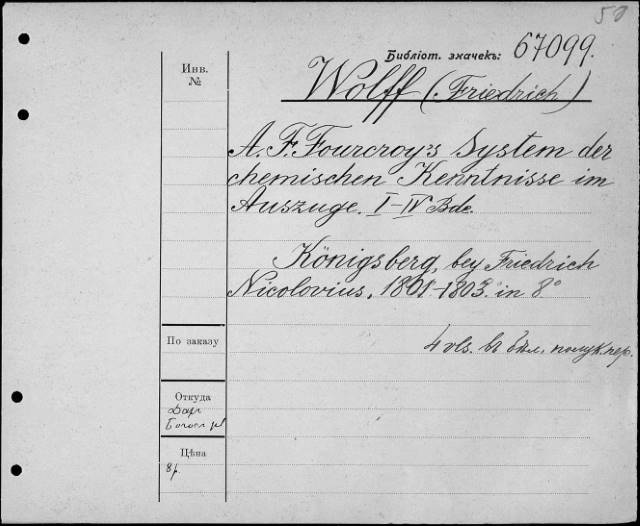 50
Библіот. значекъ: 67099.
Инв.
№
Wolff (Friedrich)
A. F. Fourcroy's System der
chemischen Kenntnisse im
Auszuge. I-IV Bde.
Königsberg, bey Friedrich
Nicolovius, 1801-1803. in 8°
4 vls. въ бѣл. полук. пер.
По заказу
Откуда
Даръ
Цѣна
8р.